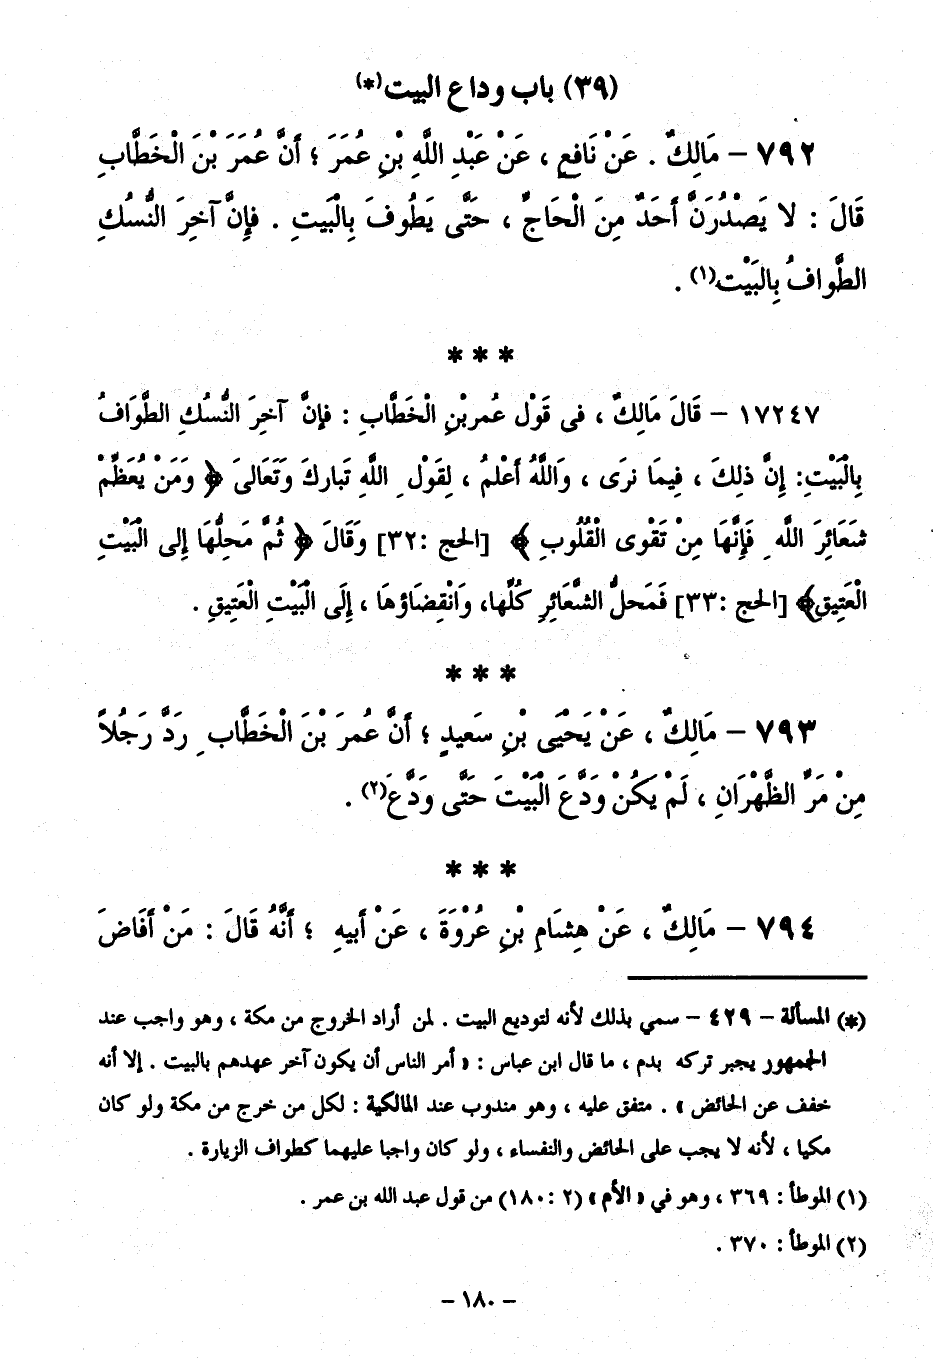 (٣٩) باب وداع البيت(*)
٧٩٢ – مَالِكٌ . عَنْ نَافِعٍ ، عَنْ عَبْدِ اللَّهِ بْنِ عُمَرَ ؛ أَنَّ عُمَرَ بْنَ الْخَطَّابِ
قَالَ : لا يَصْدُرَنَّ أَحَدٌ مِنَ الْحَاجِّ ، حَتَّى يَطُوفَ بِالْبَيتِ . فإِنَّ آخِرَ النُّسُكِ
الطَّوافُ بِالبَيْتِ(١) .
* * *
١٧٢٤٧ – قَالَ مَالِكٌ ، فى قَوْل عُمربْنِ الْخَطَّابِ : فإنَّ آخِرَ النُّسُكِ الطَّوَافُ
بِالْبَيْتِ: إِنَّ ذلِكَ ، فِيمَا نرَى ، وَاللَّهُ أَعْلمُ ، لِقَوْلِ اللَّهِ تَباركَ وَتَعَالىَ ﴿ وَمَنْ يُعَظِّمْ
شعَائِرَ اللَّهِ فَإِنَّهَا مِنْ تَقْوى الْقُلُوبِ ﴾ [الحج :٣٢] وَقَالَ ﴿ ثُمَّ مَحِلُّهَا إِلى الْبَيْتِ
الْعَتِيقِ﴾ [الحج :٣٣] فَمَحلُّ الشَّعَائرِ كُلِّها، وَانْقِضَاؤهَا ، إِلَى الْبَيْتِ الْعَتِيقِ .
* * *
٧٩٣ – مَالِكٌ ، عَنْ يَحْيَى بْنِ سَعيدٍ ؛ أَنَّ عُمرَ بْنَ الْخَطَّابِ رَدَّ رَجُلاً
مِنْ مَرِّ الظَّهْرَانِ ، لَمْ يَكُنْ وَدَّعَ الْبَيْتَ حَتَّى وَدَّعَ(٢) .
* * *
٧٩٤ – مَالِكٌ ، عَنْ هِشَامِ بْنِ عُرْوَةَ ، عَنْ أَبيهِ ؛ أَنَّهُ قَالَ : مَنْ أَفَاضَ
(*) المسألة – ٤٢٩ – سمي بذلك لأنه لتوديع البيت . لمن أراد الخروج من مكة ، وهو واجب عند
الجمهور يجبر تركه بدم ، ما قال ابن عباس : « أمر الناس أن يكون آخر عهدهم بالبيت . إلا أنه
خفف عن الحائض » . متفق عليه ، وهو مندوب عند المالكية : لكل من خرج من مكة ولو كان
مكيا ، لأنه لا يجب على الحائض والنفساء ، ولو كان واجبا عليهما كطواف الزيارة .
(١) الموطأ : ٣٦٩ ، وهو في « الأم » (٢ : ١٨٠) من قول عبد الله بن عمر .
(٢) الموطأ : ٣٧٠ .
– ١٨٠ –